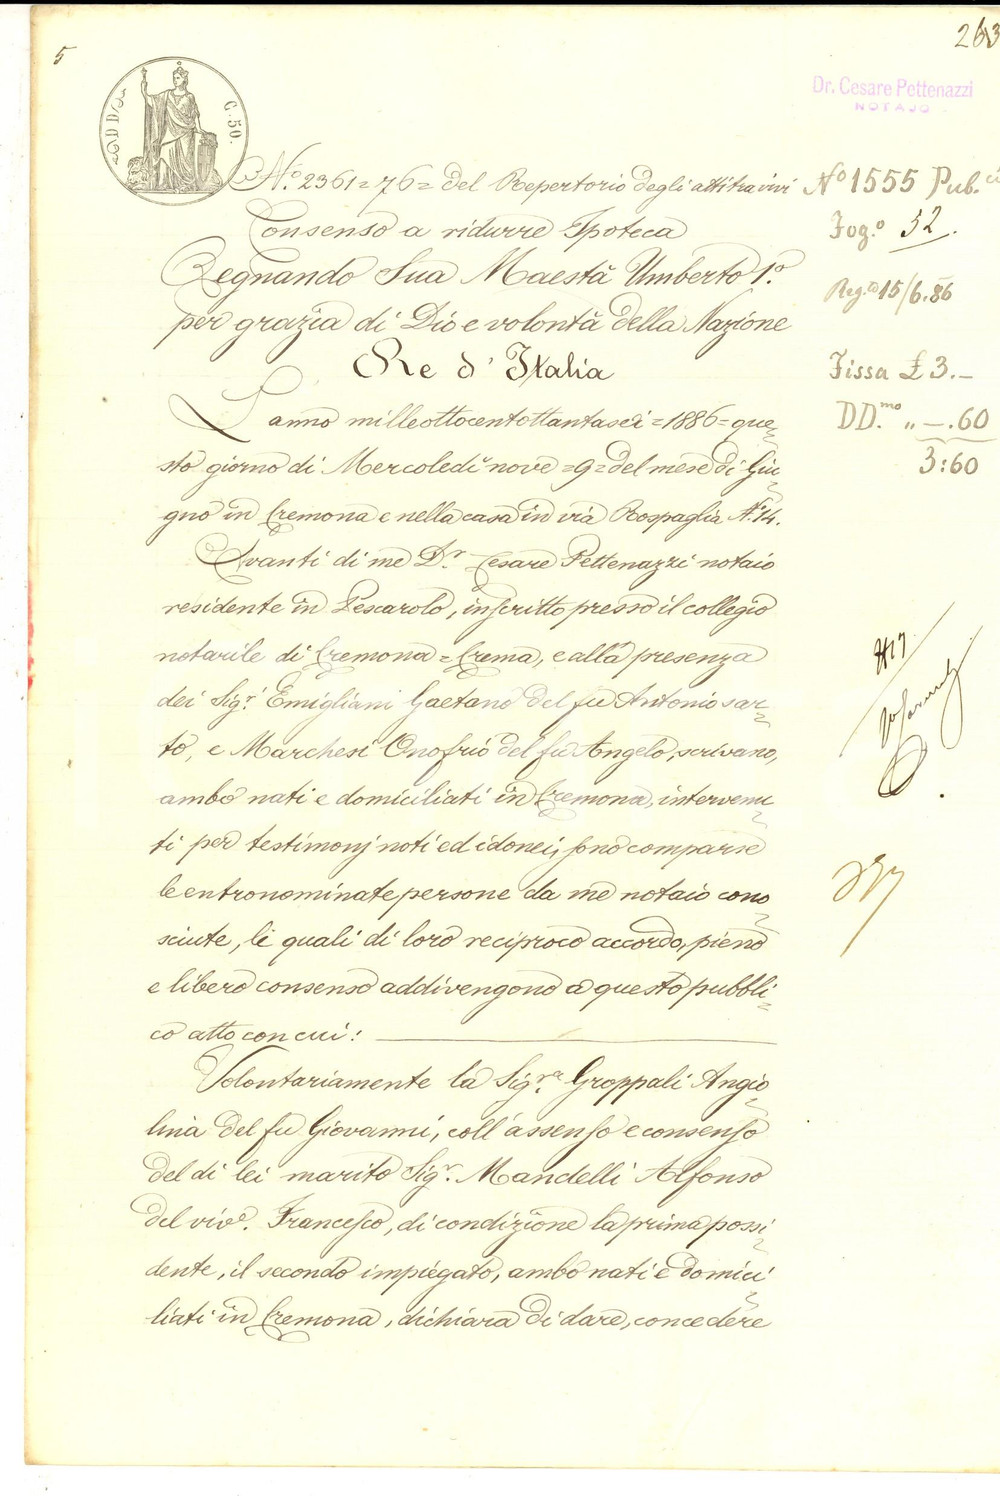 5
263
Dr. Cesare Pettenazzi
NOTAJO
C. 50.
N.º 2361=76= del Repertorio degli atti tra vivi
Consenso a ridurre Ipoteca
Regnando Sua Maestà Umberto 1.º
per grazia di Dio e volontà della Nazione
Re d'Italia
L'anno milleottocentottantasei =1886= que=
sto giorno di Mercoledì nove =9= del mese di Giu=
gno in Cremona e nella casa in via Rospaglia N.º 14.
Avanti di me D.r Cesare Pettenazzi notaio
residente in Pescarolo, inscritto presso il collegio
notarile di Cremona=Crema, e alla presenza
dei Sig.ri Emigliani Gaetano del fu Antonio sar=
to, e Marchesi Onofrio del fu Angelo, scrivano,
ambo nati e domiciliati in Cremona, intervenu=
ti per testimonj noti ed idonei, sono comparse
le entronominate persone da me notaio cono=
sciute, le quali di loro reciproco accordo, pieno
e libero consenso addivengono a questo pubbli=
co atto con cui:
Volontariamente la Sig.ra Groppali Angio=
lina del fu Giovanni, coll'assenso e consenso
del di lei marito Sig.r Mandelli Alfonso
del viv.e Francesco, di condizione la prima possi=
dente, il secondo impiegato, ambo nati e domici=
liati in Cremona, dichiara di dare, concedere
Nº 1555 Pub.ci
Fog.º 52.
Reg.to 15/6.86
Fissa £ 3.–
DD.mo „ –.60
3:60